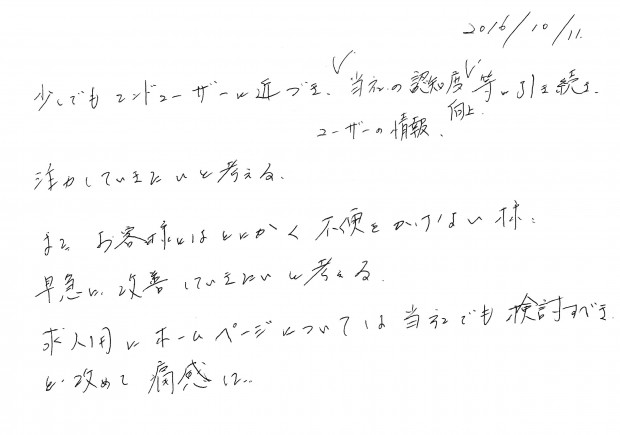 2016/10/11
少しでもエンドユーザーに近づき、当社の認知度等に引き続き、
ユーザーの情報、 向上
注力していきたいと考える。
また、お客様にはとにかく不便をかけない様に
早急に改善していきたいと考える。
求人用にホームページについては当社でも検討すべき
と改めて痛感した。